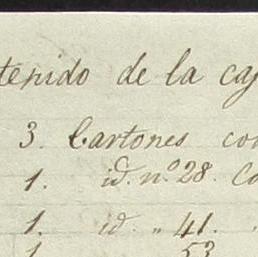 tenido de la caj
3. Cartones con
1. id. nº 28. Co
1. id. " 41. "
1 53